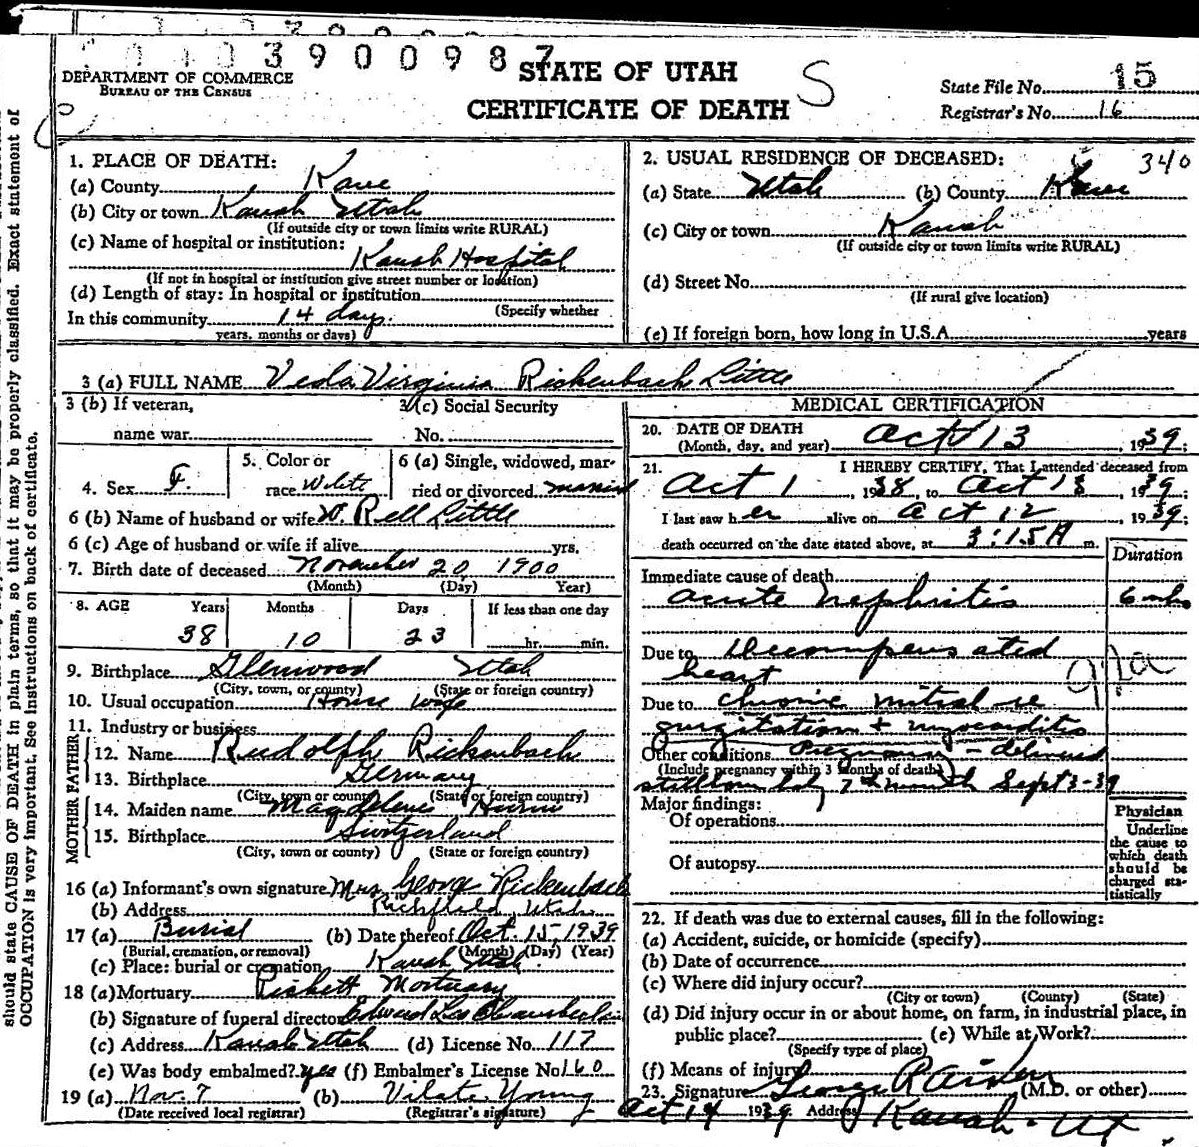 390098
STATE OF UTAH
CERTIFICATE OF DEATH
S
DEPARTMENT OF COMMERCE
BUREAU OF THE CENSUS
State File No. 15
Registrar's No. 16
should state CAUSE OF DEATH in plain terms, so that it may be properly classified. Exact statement of
OCCUPATION is very important. See instructions on back of certificate.
1. PLACE OF DEATH:
(a) County Kane
(b) City or town Kanab Utah
(If outside city or town limits write RURAL)
(c) Name of hospital or institution:
Kanab Hospital
(If not in hospital or institution give street number or location)
(d) Length of stay: In hospital or institution
(Specify whether
In this community 14 days
years, months or days)
2. USUAL RESIDENCE OF DECEASED: 340
(a) State Utah (b) County Kane
(c) City or town Kanab
(If outside city or town limits write RURAL)
(d) Street No.
(If rural give location)
(e) If foreign born, how long in U.S.A. years
3 (a) FULL NAME Veda Virginia Rickenbach Little
3 (b) If veteran,
name war
3 (c) Social Security
No.
4. Sex F.
5. Color or
race White
6 (a) Single, widowed, mar-
ried or divorced married
6 (b) Name of husband or wife W. Rell Little
6 (c) Age of husband or wife if alive yrs.
7. Birth date of deceased November 20 1900
(Month) (Day) Year)
8. AGE Years Months Days If less than one day
38 10 23 hr. min.
9. Birthplace Glenwood Utah
(City, town, or county) (State or foreign country)
10. Usual occupation House wife
11. Industry or business
FATHER
12. Name Rudolph Rickenbach
13. Birthplace Germany
(City, town or county) (State or foreign country)
MOTHER
14. Maiden name Magdelene
15. Birthplace Switzerland
(City, town or county) (State or foreign country)
16 (a) Informant's own signature Mrs George Rickenbach
(b) Address Richfield, Utah
17 (a) Burial (b) Date thereof Oct. 15, 1939
(Burial, cremation, or removal) (Month) (Day) (Year)
(c) Place: burial or cremation Kanab Utah
18 (a) Mortuary Mortuary
(b) Signature of funeral director Edward Leo Chamberlain
(c) Address Kanab Utah (d) License No. 117
(e) Was body embalmed? yes (f) Embalmer's License No 160
19 (a) Nov. 7 (b) Vilate Young
(Date received local registrar) (Registrar's signature)
MEDICAL CERTIFICATION
20. DATE OF DEATH
(Month, day, and year) Oct 13, 1939;
21. I HEREBY CERTIFY, That I attended deceased from
Oct 1, 1938, to Oct 13, 1939;
I last saw her alive on Oct 12, 1939;
death occurred on the date stated above, at 3:15A m.
Duration
Immediate cause of death
acute nephritis 6 mks
Due to Decompensated
heart
Due to chronic mitral re
gurgitation + myocarditis
Other conditions Pregnancy - delivered
(Include pregnancy within 3 months of death)
stillborn baby 7th month Sept 3-39
Major findings:
Of operations
Of autopsy
Physician
Underline
the cause to
which death
should be
charged sta-
tistically
22. If death was due to external causes, fill in the following:
(a) Accident, suicide, or homicide (specify)
(b) Date of occurrence
(c) Where did injury occur?
(City or town) (County) (State)
(d) Did injury occur in or about home, on farm, in industrial place, in
public place? (e) While at Work?
(Specify type of place)
(f) Means of injury
23. Signature George R Aiken (M.D. or other)
Oct 14 1939 Address Kanab - Ut